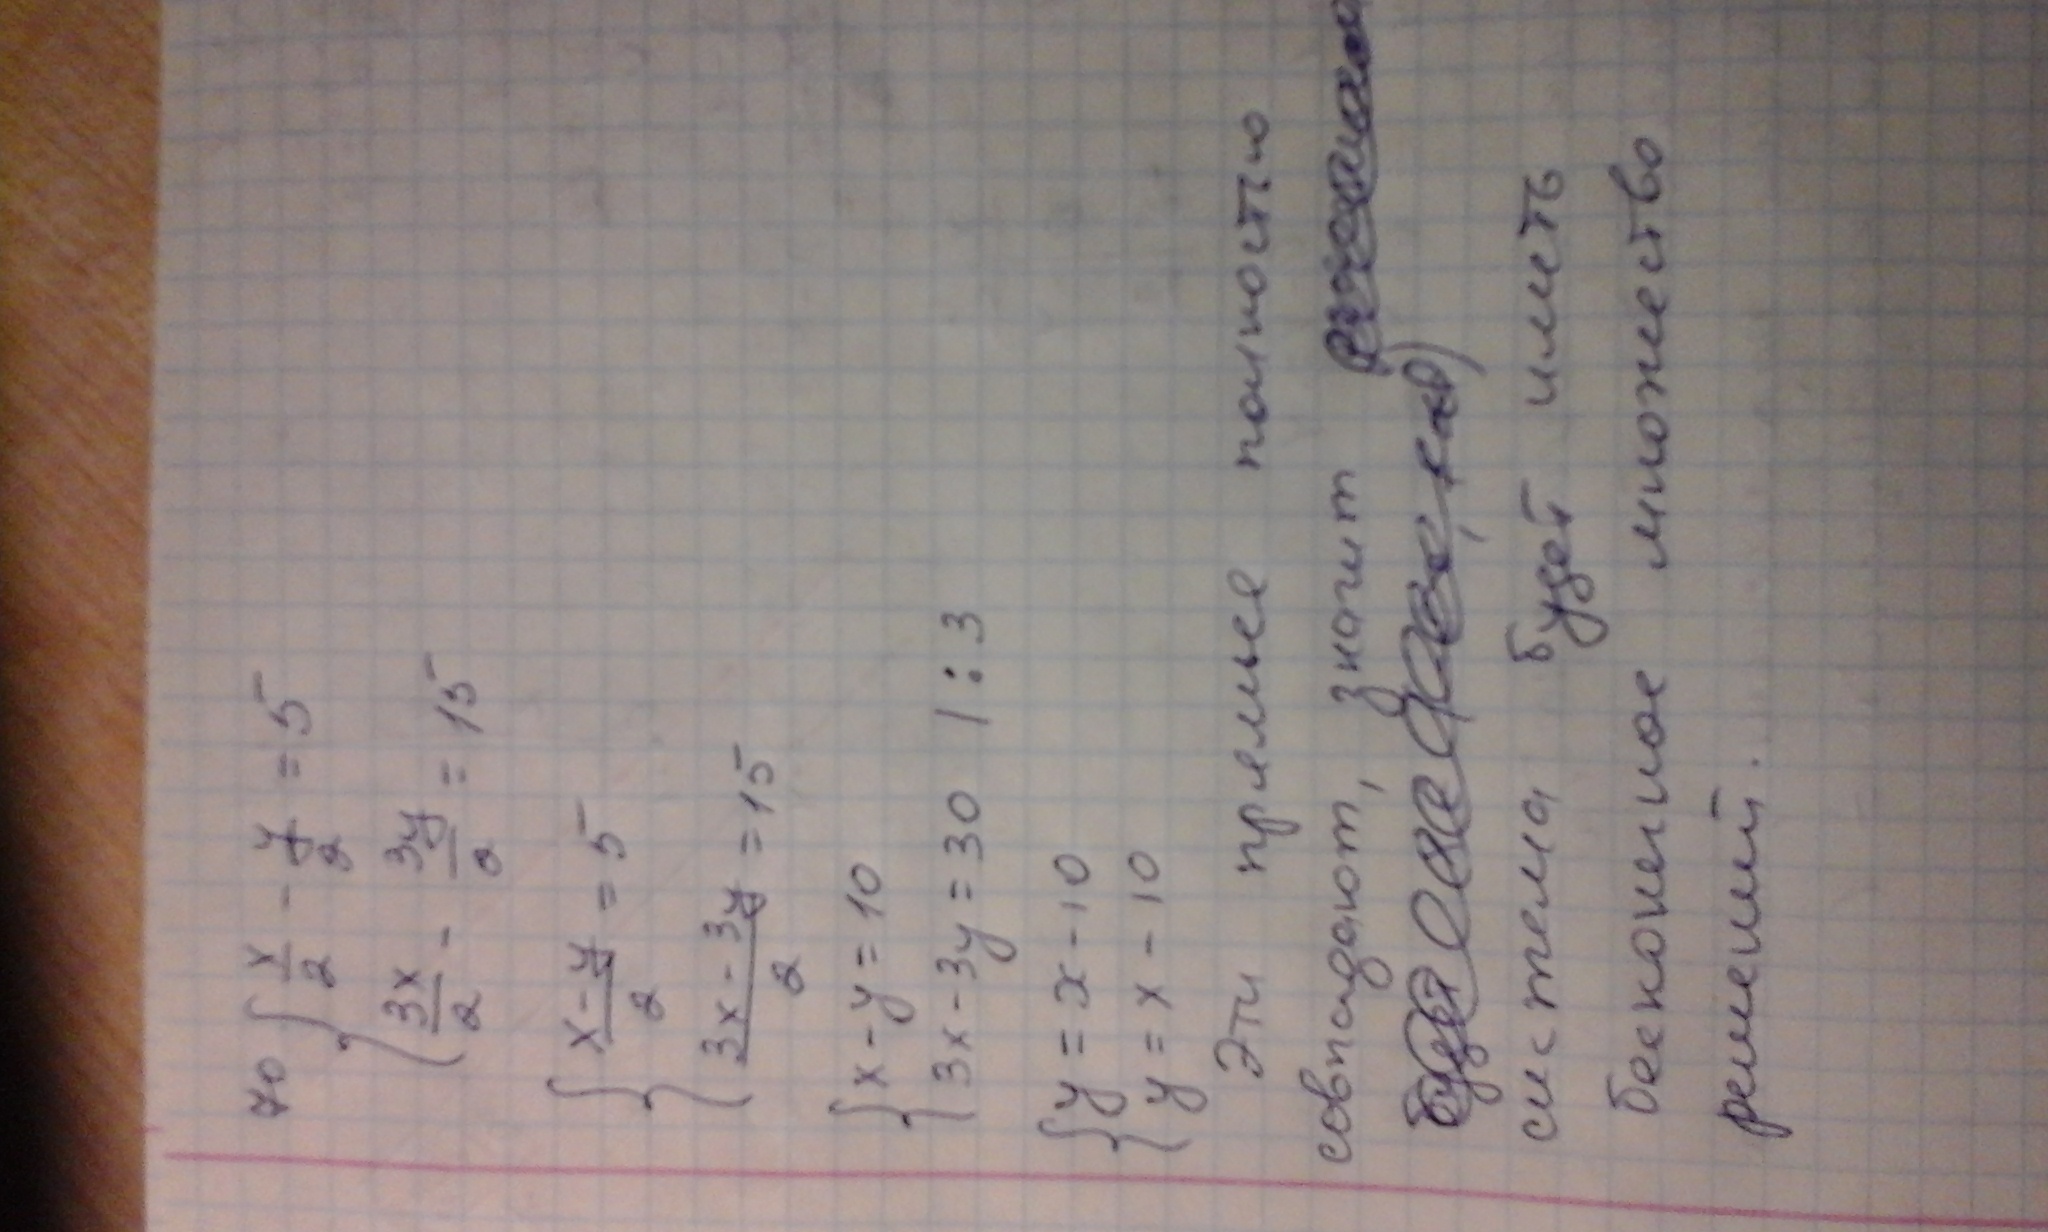 70 { x/2 - y/2 = 5
3x/2 - 3y/2 = 15
{ x-y/2 = 5
3x-3y/2 = 15
{ x-y=10
3x-3y=30 |:3
{ y=x-10
y=x-10
Эти прямые полностью
совпадают, значит
система будет иметь
бесконечное множество
решений.